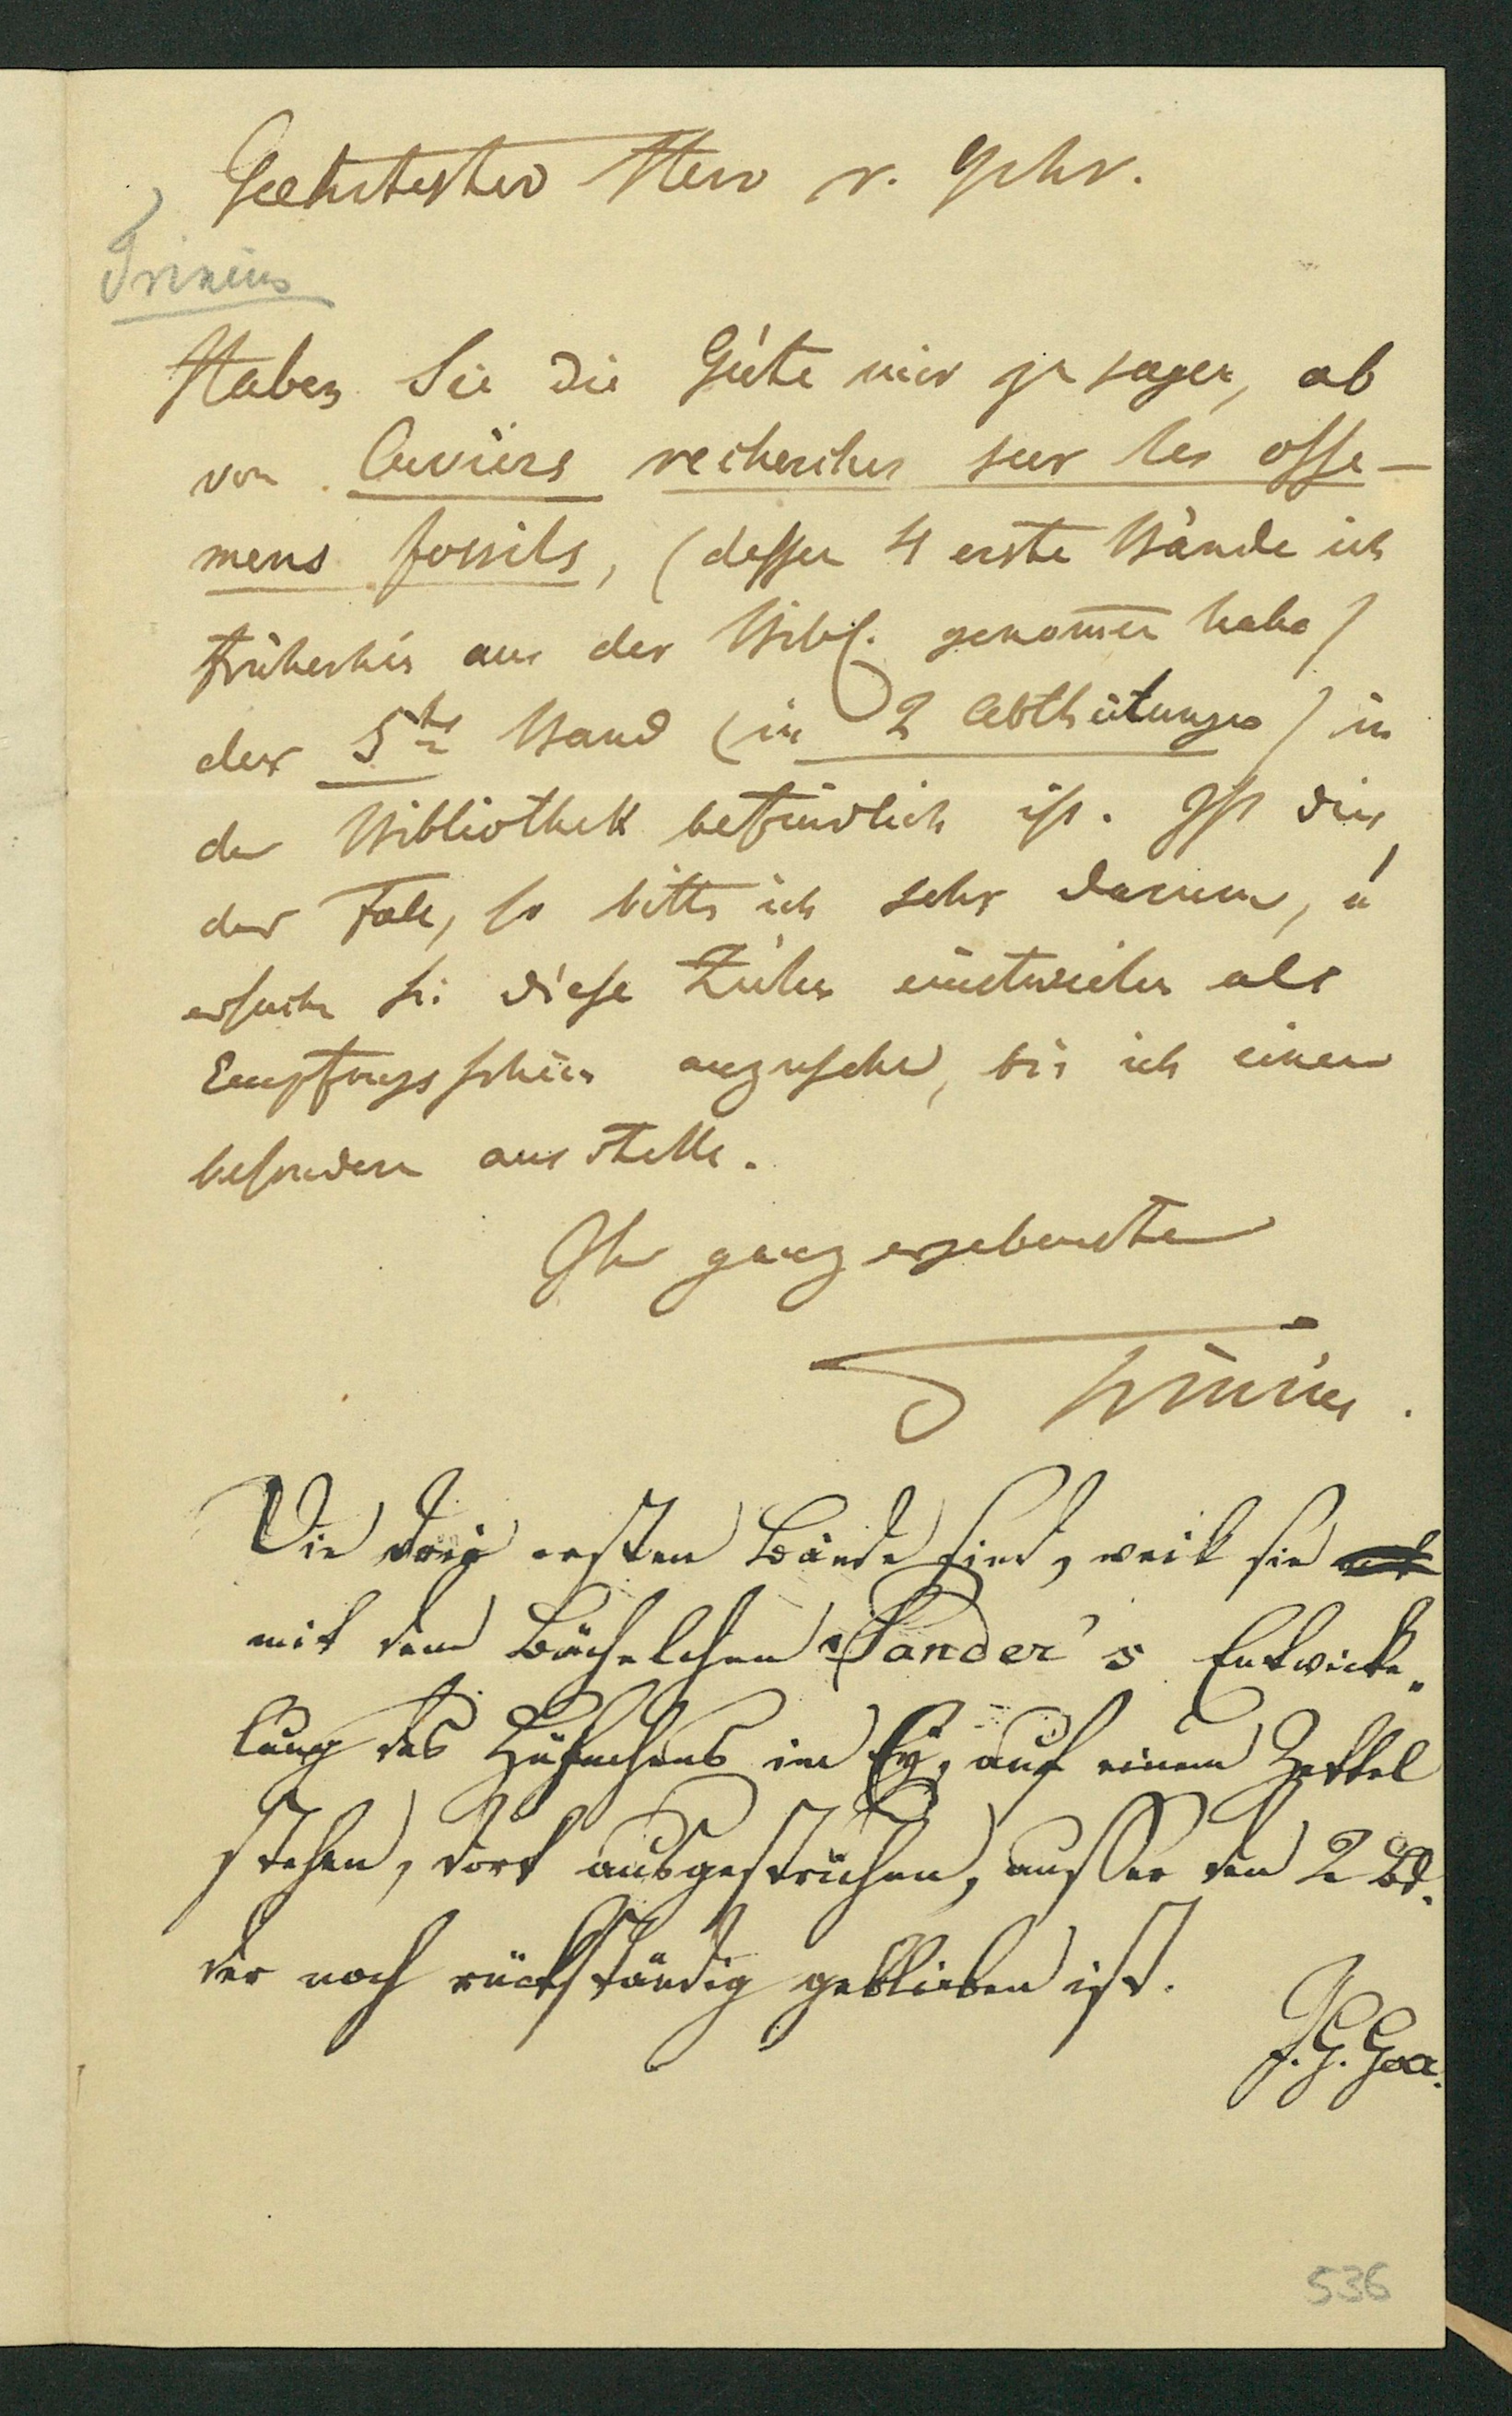 Geehrtester Herr v. Gehr.
Trinius
Haben Sie die Güte mir zu sagen, ob
von Cuviers recherches sur les osse-
mens fossils, (dessen 4 erste Bände ich
früherhin aus der Bibl. genom̄en habe)
der 5te Band (in 2 Abtheilungen) in
der Bibliothek befindlich ist. Ist dies
der Fall, so bitte ich sehr darum, u
ersuche Sie diese Zeilen einstweilen als
Empfangsschein anzusehen, bis ich einen
besondern ausstelle.
Ihr ganz ergebenster
Trinius.
Die drey ersten Bände sind, weil sie
mit dem Büchelchen Pander's Entwicke-
lung des Hühnchens im Ey, auf einem Zettel
stehen, dort ausgestrichen, ausser dem 2 Bd.
der noch rückständig geblieben ist.
536